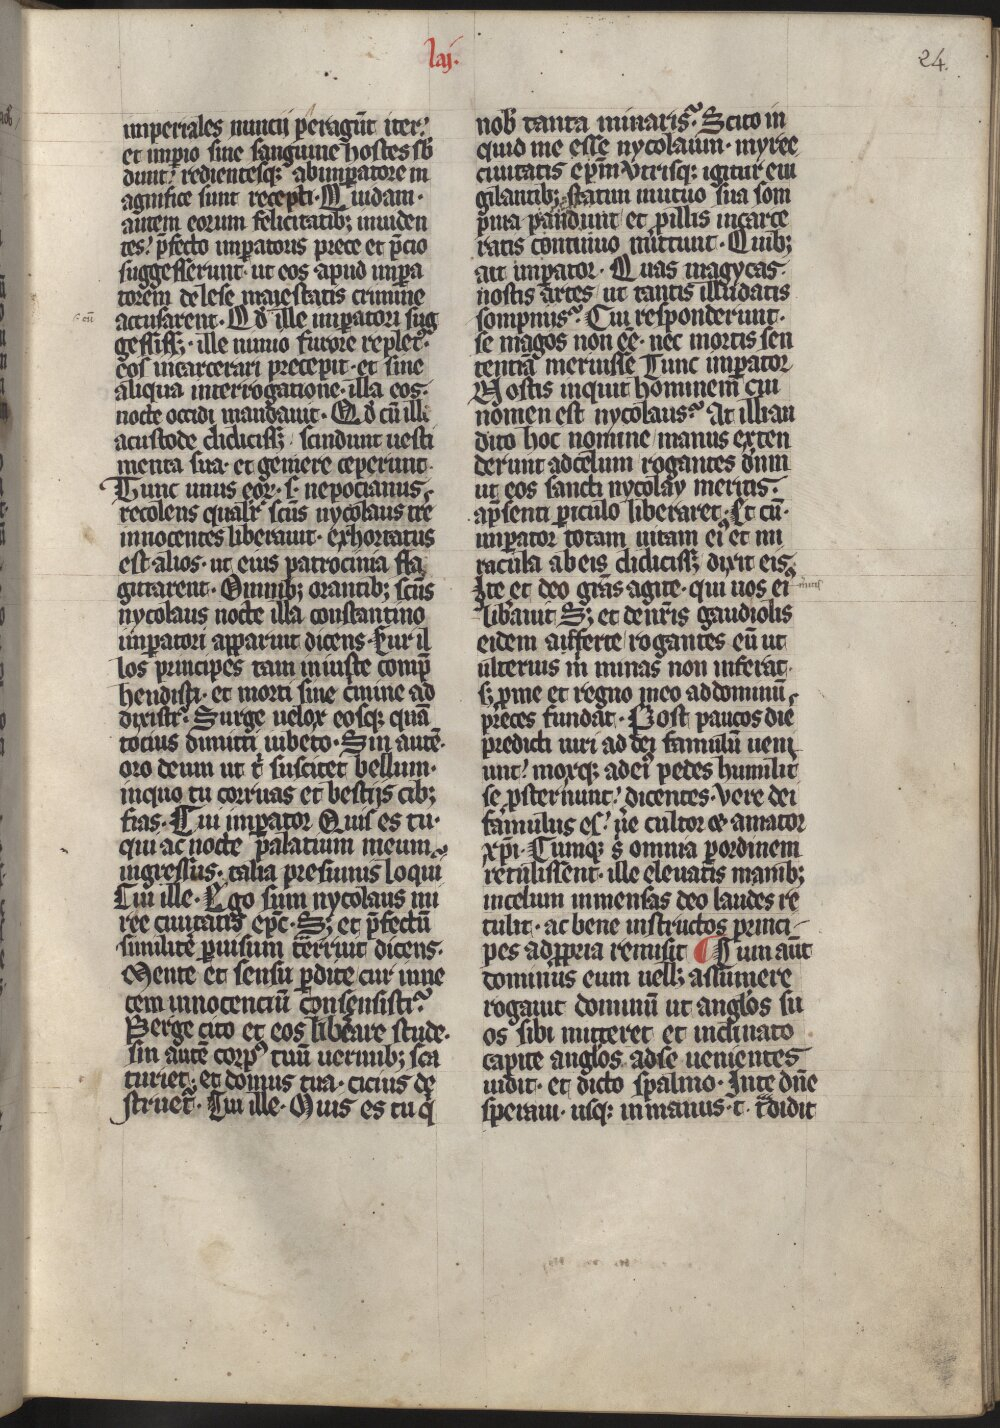 lxj.
24.
imperiales nuncij peragūt iter.
et imp̲io sine sanguine hostes sb̄
dunt. redientesq; ab imp̲atore m
agnifice sunt recepti. Quidam.
autem eorum felicitatib; inuiden
tes. p̄fecto imp̲atoris prece et p̄cio
suggesserunt. ut eos apud imp̲a
torem de lese maiestatis crimine
accusarent. Qd̄ ille imp̲atori sug
gessiss;. ille nimio furore replet᷒.
eos incarcerari precepit. et sine
aliqua interrogatione. illa eos.
nocte occidi mandauit. Qd̄ cū illi
a custode didiciss;. scindunt uesti
menta sua. et gemere ceperunt.
Tunc unus eoꝝ. s. nepocianus.
recolens qualr̄ scūs nycolaus tre
innocentes liberauit. exhortatus
est alios. ut eius patrocinia fla
gitarent. Quib; orantib; scūs
nycolaus nocte illa constantino
imp̲atori apparuit dicens. Cur il
los principes tam iniuste comp̄
hendisti. et morti sine c̄mine ad
dixisti. Surge uelox eosq; quā
tocius dimitti iubeto. Sin autē.
oro deum ut t̄ suscitet bellum.
in quo tu corruas et bestijs cib;
fias. Cui imp̲ator Quis es tu.
qui ac nocte palatium meum
ingressus. talia presumis loqui
Cui ille. Ego sum nycolaus mi
ree ciuitatis ep̄c. S; et p̄fectū
similitē p̲ uisum terruit dicens.
Mente et sensu p̲dite cur inne
cem innocenciū consensisti.
Perge cito et eos liberare stude.
sin autē corp᷒ tuū uermib; sca
turiet. et domus tua. cicius de
struet᷒. Cui ille. Quis es tu q̇
nob̄ tanta minaris. Scito in
quid me esse nycolaum. myree
ciuitatis ep̄m. Vtrisq; igitur eui
gilantib;. statim mutuo sua som
pnia pandunt et p̲ illis incarce
ratis continuo mittunt. Quib;
ait imp̲ator. Quas magycas.
nostis artes. ut tantis illudatis
sompniis. Cui responderunt.
se magos non eē. nec mortis sen
tentiā meruisse Tunc imp̲ator
Nostis inquit hominem cui
nomen est nycolaus. At illi au
dito hoc nomine. manus exten
derunt ad celum rogantes dn̄m
ut eos sancti nycolay meritis.
a p̄senti p̲iculo liberaret. Et cū.
imp̲ator totam uitam ei᷒ et mi
racula ab eis didiciss; dixit eis.
Ite et deo grās agite. qui uos ei᷒
lib̄auit S; et de nr̄is gaudiolis
eidem afferte. rogantes eū ut
ulterius m̄ minas non inferat.
s; p̲ me et regno meo ad dominū
preces fundat. Post paucos die
predicti uiri ad dei famulū ueni
unt. moxq; ad ei᷒ pedes humilit̄
se p̲sternunt. dicentes. Vere dei
famulus es. ue᷒e cultor et amator
xp̄i. Cumq; s̄ omnia p̲ ordinem
retulissent. ille eleuatis manib;
in celum inmensas deo laudes re
tulit. ac bene instructos princi
pes ad p̲pria remisit ¶ Cum aūt
dominus eum uell; assumere
rogauit dominū ut anglos su
os sibi mitteret et inclinato
capite anglos ad se uenientes
uidit. et dicto spalmo. In te dn̄e
speraui. usq; in manus. t. t̄didit